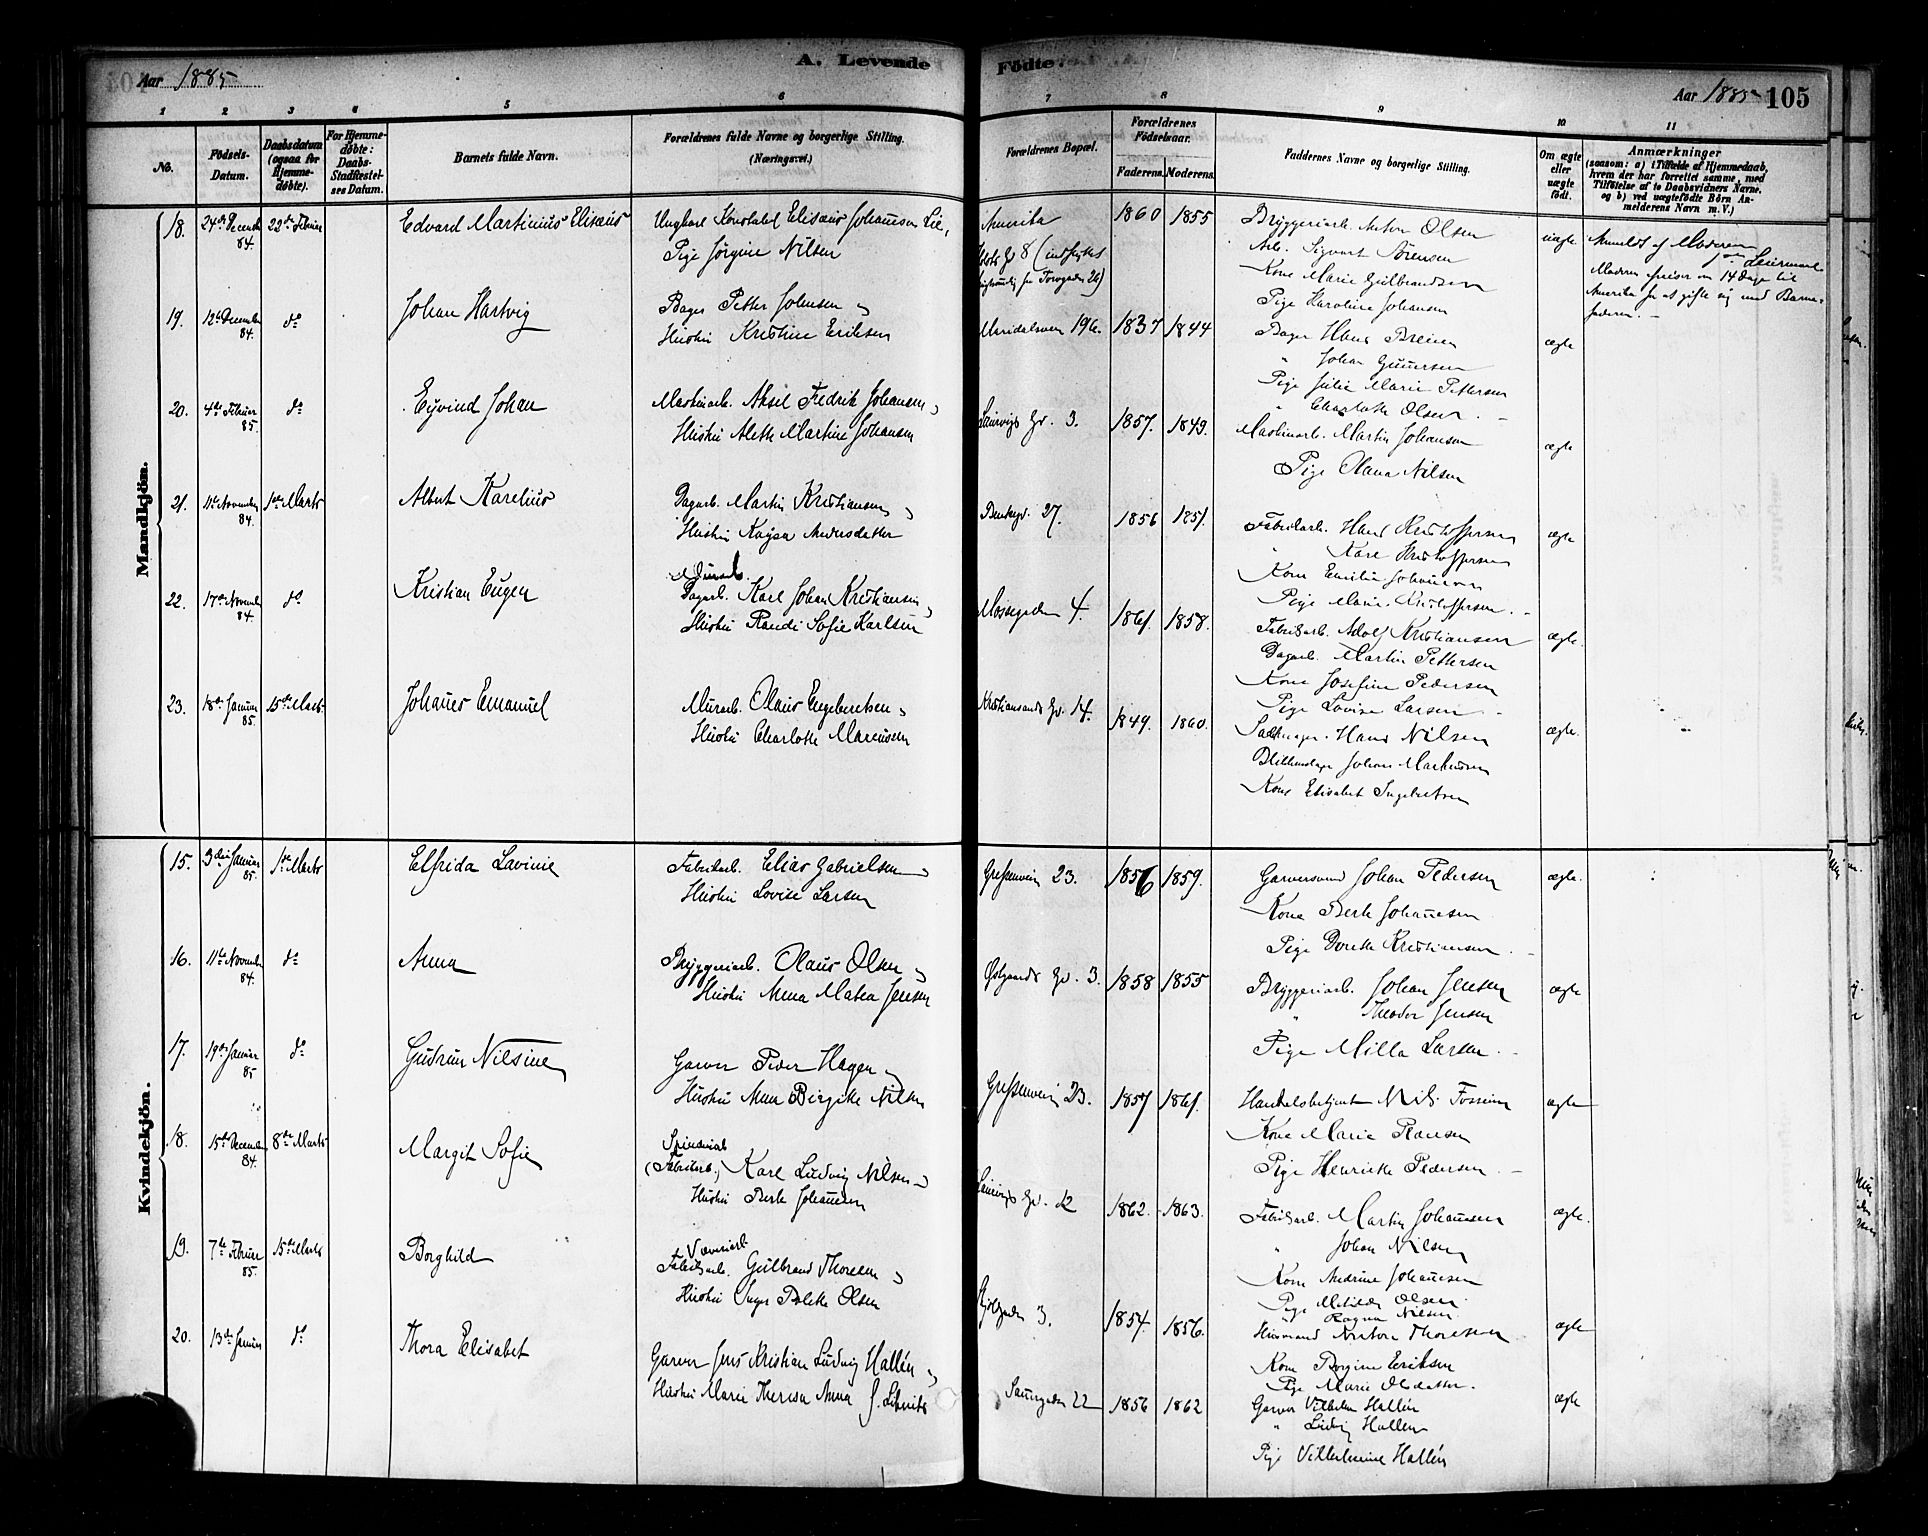 Aar 1885
A. Levende
Fødte.
Aar 1885
105
1 2 3 4 5 6 7 8 9 10 11
No.
Fødsels-
Datum.
Daabsdatum
(ogsaa for
Hjemme-
døbte).
For Hjemme-
døbte:
Daabs-
Stadfæstel-
ses Datum.
Barnets fulde Navn.
Forældrenes fulde Navne og borgerlige Stilling.
(Næringsvei.)
Forældrenes Bopæl.
Forældrenes
Fødselsaar.
Faderens. Moderens.
Faddernes Navne og borgerlige Stilling.
Om ægte
eller
uægte
født.
Anmærkninger
(saasom: a) i Tilfælde af Hjemmedaab,
hvem der har forrettet samme, med
Tilføielse af to Daabsvidners Navne.
og b) ved uægtefødte Børn An-
melderens Navn m. V.)
Mandkjön.
18. 24de Decemb 84. 22de Februar Edvard Martinius Elisæus
Ungkarl Konstabel Elisæus Johansen Lie,
Pige Jørgine Nilsen
Amerika
1860 1855
Bryggeriarb. Anton Olsen
Arb. Sigvart Sørensen
Kone Marie Gulbrandsen
Pige Karoline Johansen
uægte
Anmeldt af Moderen
Moderen reiser om 14 Dage til
Amerika for at gifte sig med Barne-
faderen.
19. 12te December 84. do Johan Hartvig
Bager Petter Johnsen
Hustru Kristine Eriksen
Maridalsveien 196. 1837 1844
Bager Hans Breien
" Johan Gunnersen
Pige Julie Marie Pettersen
" Charlotte Olsen
ægte
20. 4de Februar 85. do Eyvind Johan
Maskinarb. Aksel Fredrik Johansen
Hustru Alette Martine Johansen
Laurvigs Gd. 3. 1857. 1849.
Maskinarb. Martin Johansen
Pige Olava Nilsen
ægte
21. 11te November 84. 1ste Marts Albert Karelius
Dagarb. Martin Kristiansen
Hustru Kaysa Andersdatter
27. 1856 1851.
Fabrikarb. Hans Kristoffersen
" Karl Kristoffersen
Kone Emilie Johansen
Pige Marie Kristoffersen
ægte
22. 17de November 84. do Kristian Eugen
Dagarb. Karl Johan Kristiansen
Hustru Randi Sofie Karlsen
Mossegaden 4. 1861. 1858.
Fabrikarb. Adolf Kristiansen
Dagarb. Martin Pettersen
Kone Josefine Pedersen
Pige Lovise Larsen
ægte.
23. 18de Januar 85. 15de Marts. Johanes Emanuel
Murarb. Olaus Engebretsen
Hustru Charlotte Marcussen
Kristiansands Gd. 14. 1849. 1860.
Hans Nilsen
Johan Markussen
Kone Elisabet Ingebretsen
ægte.
Kvindekjön.
15. 3die Januar 85. 1ste Marts Elfrida Lavinie
Fabrikarb. Elias Gabrielsen
Hustru Lovise Larsen
Grefsenveien 23. 1856 1859.
Garversvend Johan Pedersen
Kone Berte Johannesen
Pige Dorthe Kristiansen
ægte.
16. 11te November 84. do Anna
Bryggeriarb. Olaus Olsen
Hustru Anna Matea Jensen
Østgaards Gd. 3. 1858 1855
Bryggeriarb. Johan Jensen
" Theodor Jensen
Pige Milla Larsen
ægte
17. 19de Januar 85 do Gudrun Nilsine
Garver Peder Hagen
Hustru Anna Birgitte Nilsen
Grefsenveien 23. 1857 1861.
Handelsbetjent Nils Fossum
Kone Maria Hansen
Pige Henriette Pedersen
ægte
18. 15de December 84. 8de Marts Margit Sofie
Spinderiarb
(Fabrikarb.) Karl Ludvig Nilsen
Hustru Berte Johannesen
Laurvigs Gd. 12 1862. 1863.
Fabrikarb. Martin Johannesen
" Johan Nilsen
Kone Andrine Johannesen
Pige Matilde Olsen
" Ragna Nilsen
ægte.
19. 7de Februar 85. 15de Marts Borghild
Væveriarb
Fabrikarb. Gulbrand Thoresen
Hustru Inger Bolette Olsen
3. 1854. 1856.
Husmand Anton Thoresen
Kone Borgine Eriksen
Pige Marie Olsdatter
ægte
20. 13de Januar do Thora Elisabet
Garver Jens Kristian Ludvig Hallén
Hustru Marie Theresa Anna
22 1856 1862
Garver Vilhelm Hallén
" Ludvig Hallen
Pige Vilhelmine Hallén
ægte